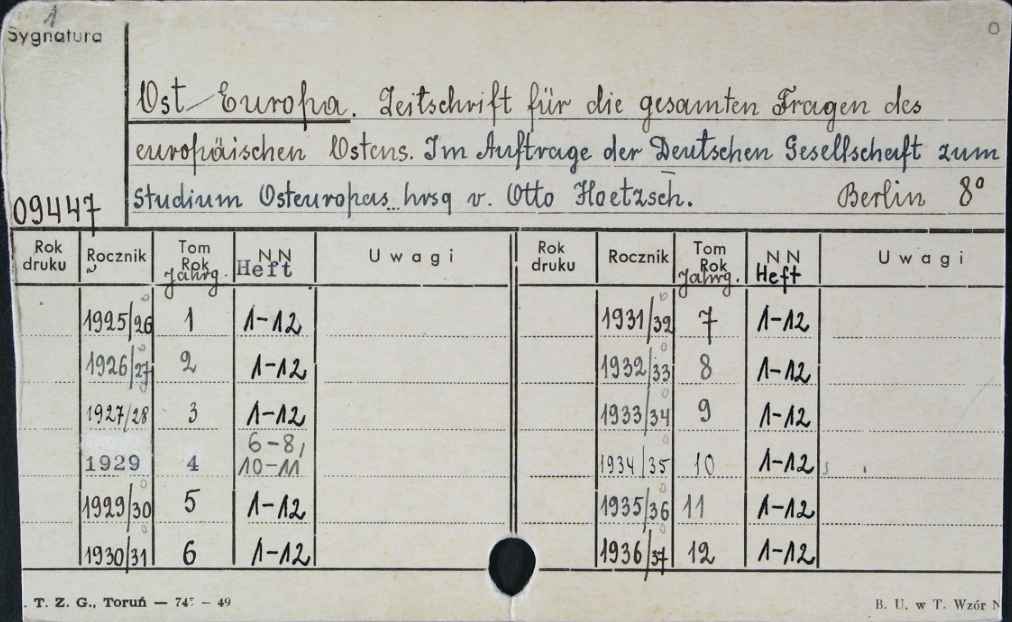 1
Sygnatura
O
Ost-Europa. Zeitschrift für die gesamten Fragen des
europäischen Ostens. Im Auftrage der Deutschen Gesellschaft zum
Studium Osteuropas hrsg v. Otto Hoetzsch. Berlin 8°
09447
Rok druku Rocznik Tom Rok Jahrg. NN Heft Uwagi Rok druku Rocznik Tom Rok Jahrg. NN Heft Uwagi
1925/26 1 1-12 1931/32 7 1-12
1926/27 2 1-12 1932/33 8 1-12
1927/28 3 1-12 1933/34 9 1-12
1929 4 6-8, 10-11 1934/35 10 1-12
1929/30 5 1-12 1935/36 11 1-12
1930/31 6 1-12 1936/37 12 1-12
. T. Z. G., Toruń — 74 — 49 B. U. w T. Wzór N